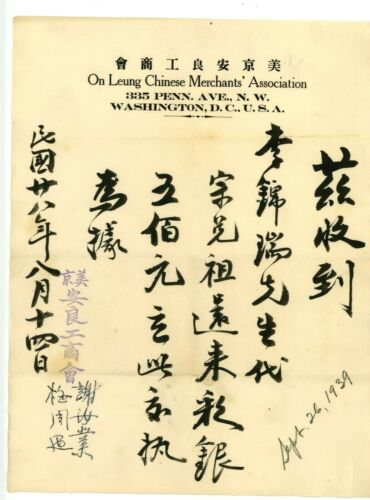 會商工良安京美
On Leung Chinese Merchants' Association
335 PENN. AVE., N. W.
WASHINGTON, D. C., U. S. A.
茲收到
李錦瑞先生代
宗兄祖還來彩銀
五佰元立此字執
為據
民國廿八年八月十四日
美京安良工商會
謝
Sept. 26, 1939